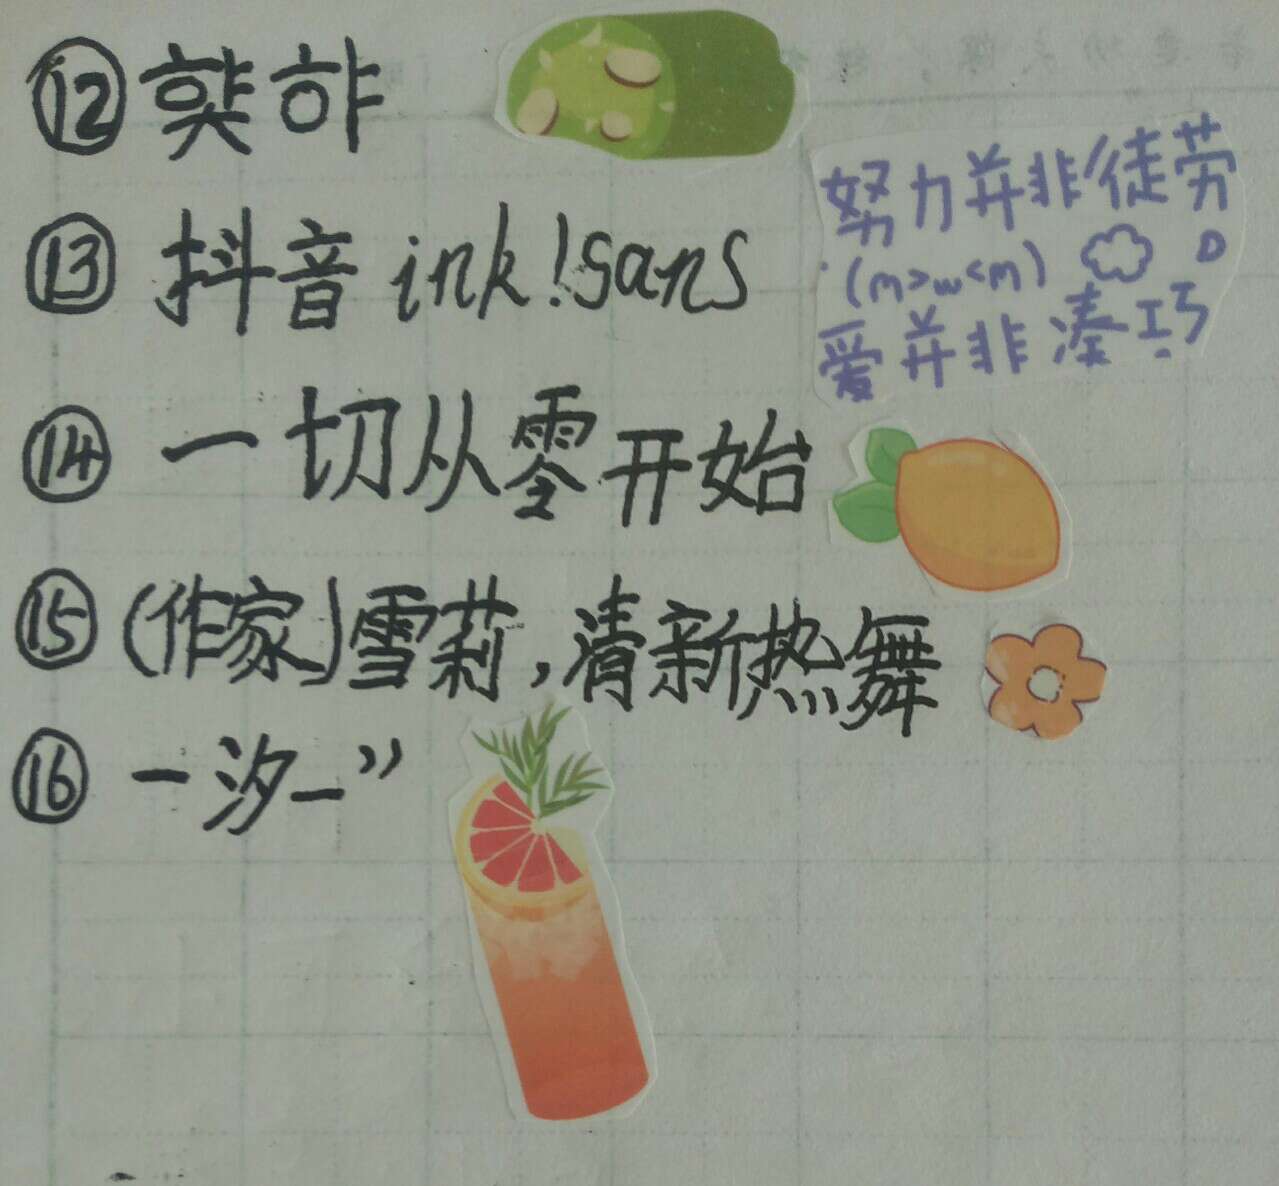 ⑫
⑬ 抖音 ink!sans
⑭ 一切从零开始
⑮ (作家)雪莉,清新热舞
⑯ 一汐_”
努力并非徒劳
(m>w<m)
爱并非凑巧